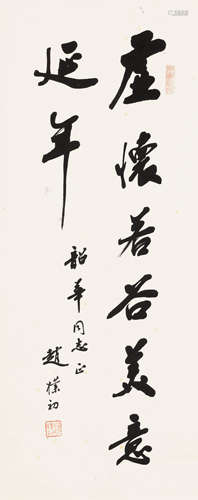 虚懷若谷美意
延年
韶華同志正
趙樸初